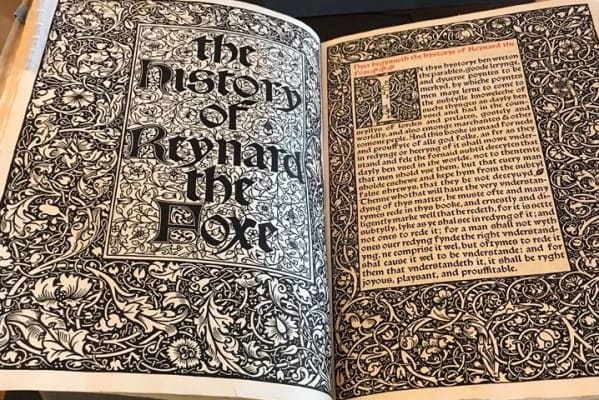 the
history
of
Reynard
the
Foxe
Hyer begynneth the hystorye of Reynard the
Foxe
IN thys hystorye ben wreton
the parables, goode lerynge,
and dyuerse poyntes to be
merkyd, by whiche poyntes
men maye lerne to come to
the subtyll knoweleche of
suche thynges as dayly ben
vsed and had in the coun
seyllys of lordes and prelates, gostly and
worldly, and also emonge marchantes & other
comone peple. And this booke is maad for nede
and prouffyte of all god folke, as fer as they
in redynge or heryng of it shall mowe vnder
stand and fele the forsaid subtyll deceytes that
dayly ben vsed in the worlde, not to thentente
that men shold vse them, but that euery man
sholde eschewe and kepe hym from the subtyll
false shrewys, that they be not deceyuyd.
Thenne who that will haue the very vnderstand
yng of this matter, he muste ofte and many
tymes rede in thys booke, and ernestly and di
ligently marke well that he redeth; for it is sett
subtylly, lyke as ye shal see in redyng of it; and
not ones to rede it; for a man shall not wyth
ones ouer redyng fynde the ryght vnderstand
yng, ne comprise it wel, but oftymes to rede it
shal cause it wel to be vnderstande: and for
them that vnderstandeth it, it shall be ryght
joyous, playsant, and prouffitable.